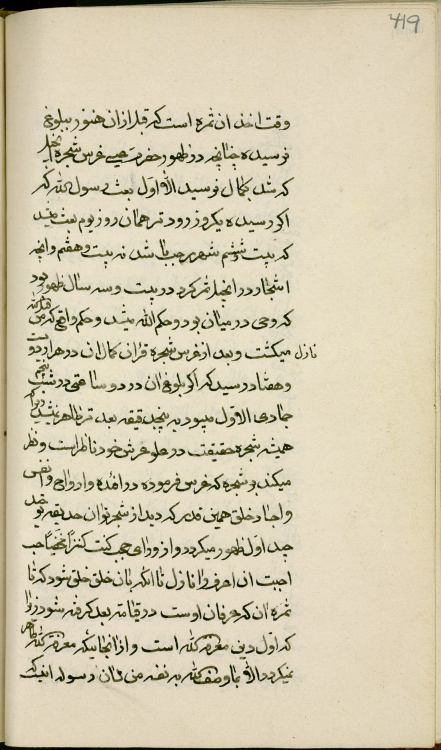 419
وقت اخذ ان ثمره است که قبل از ان هنوز ببلوغ
نرسیده چنانچه در ظهور حضرت عیسی غرس شجره انجیل
که شد بکمال نرسید الا اول بعثت رسول الله که
اکر رسیده یکروز زودتر همان روز یوم بعث میشد
که بیست و ششم شهر رجب باشد نه بیست و هفتم وانچه
اشجار در انجیل ثمر کرد در بیست و سه سال ظهور بود
که وحی در میان بود و حکم الله میشد و حکم واقع که من
نازل میکشت و بعد از غرس شجره قران کمال ان در هزار و دویست
و هفتاد رسید که اکر بلوغ ان در دو ساعتی در شب پنجم
جمادی الاولی میبود به پنجدقیقه بعد تر ظاهر نمیشد زیرا که
همیشه شجره حقیقت در علو عرش خود ناظر است و نظر
میکند بر شجره که غرس فرموده در افئده و ارواح و انفس
و اجساد خلق همین قدر که دید از شجر توان
اول ظهور میکردد و از ورای حجب کنت کنزا مخفیا
احببت ان اعرف را نازل تا انکه بان خلق خلق شود که تا
ثمره ان که عرفان اوست در قیامت بعد کرفته شود زیرا
که اول دین معرفة الله است و از انجائیکه معرفة الله ظاهر
نمیکردد الا بما وصف الله به نفسه من لسان رسوله اینست که